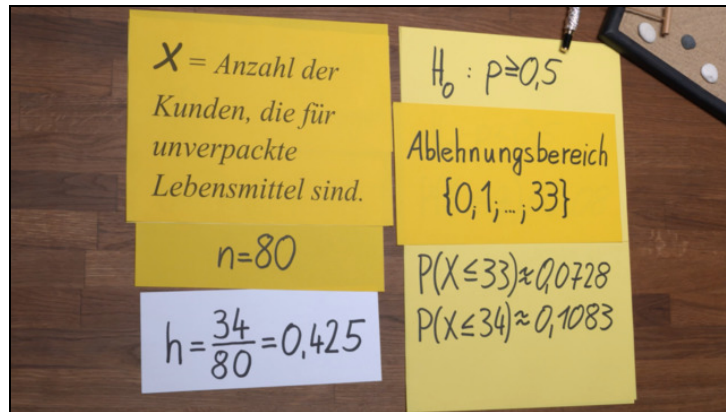 X = Anzahl der
Kunden, die für
unverpackte
Lebensmittel sind.
n=80
h = 34/80 = 0,425
H₀ : p≥0,5
Ablehnungsbereich
{0,1,...,33}
P(X≤33)≈0,0728
P(X≤34)≈0,1083